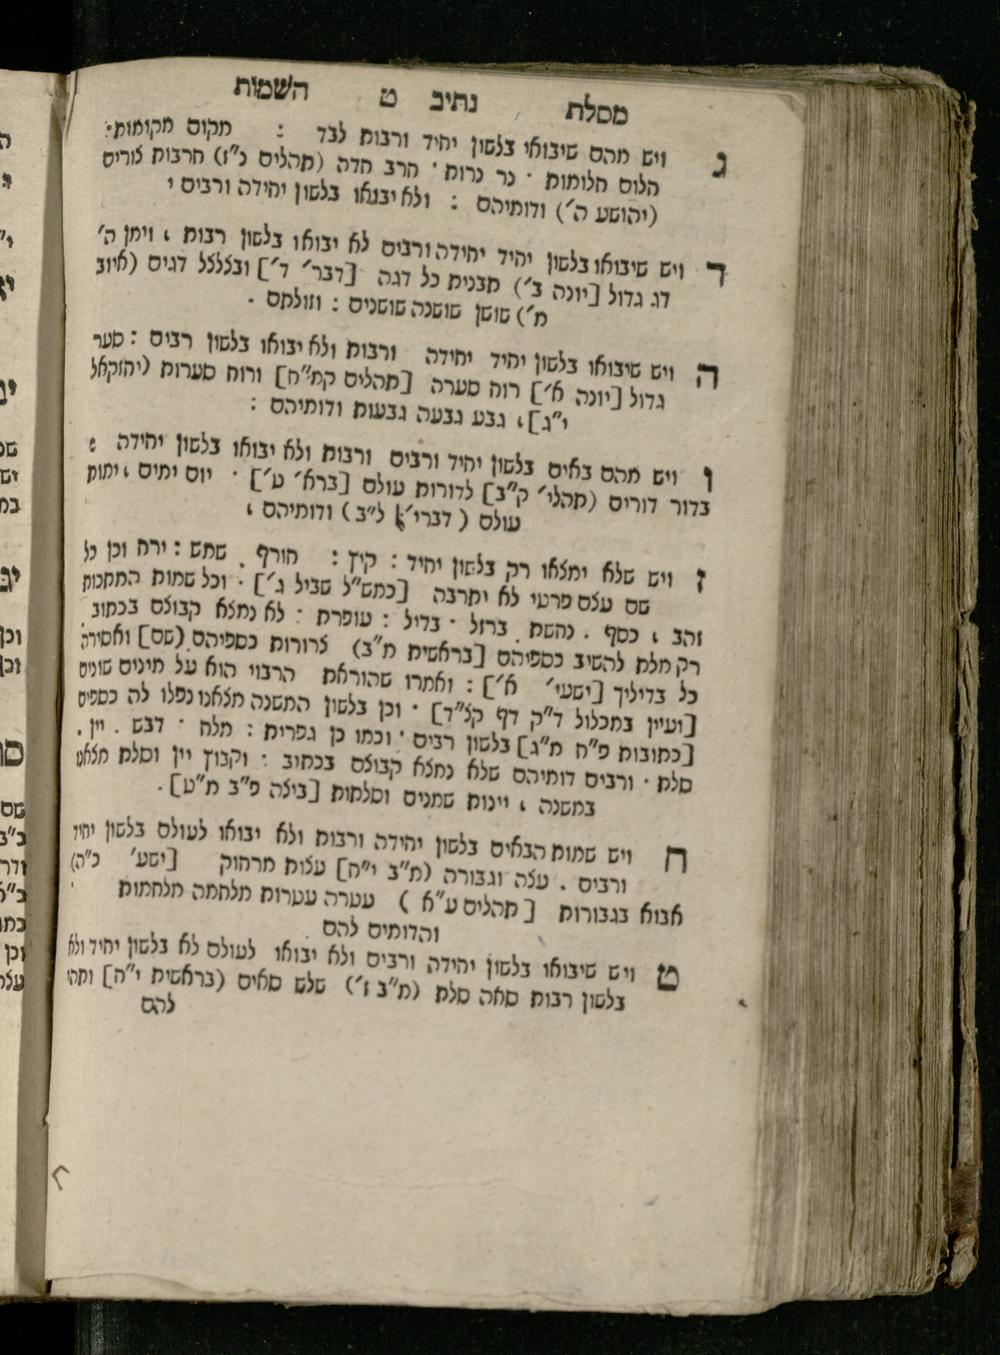 מסלת נתיב ט השמות
ג ויש מהם שיבואו בלשון יחיד ורבות לבד : מקום מקומות:
חלום חלומות · נר נרות · חרב חדה (תהלים נ״ז) חרבות צורים
(יהושע ה׳) ודומיהם : ולא יבואו בלשון יחידה ורבים י
ד ויש שיבואו בלשון יחיד יחידה ורבים לא יבואו בלשון רבות , וימן ה׳
דג גדול [יונה ב׳) תבנית כל דגה [דבר׳ ד׳] ובצלצל דגים (איוב
מ׳) שושן שושנה שושנים : וזולתם .
ה ויש שיבואו בלשון יחיד יחידה ורבות ולא יבואו בלשון רבים : סער
גדול [יונה א׳] רוח סערה [תהלים קמ״ח] ורוח סערות (יחזקאל
י״ג] , גבע גבעה גבעות ודומיהם :
ו ויש מהם באים בלשון יחיד ורבים ורבות ולא יבואו בלשון יחידה :
בדור דורים (תהלי׳ ק״ב] לדורות עולם [ברא׳ ט׳] · יום ימים , ימות
עולם ( דברי׳ ל״ב ) ודומיהם ,
ז ויש שלא ימצאו רק בלשון יחיד : קיץ : חורף . שמש : ירח וכן כל
שם עצם פרטי לא יתרבה [כמש״ל שביל ג׳] · וכל שמות המתכות
זהב , כסף . נחשת . ברזל · בדיל : עופרת · לא נמצא קבוצם בכתוב
רק מלת להשיב כספיהם [בראשית מ״ב) צרורות כספיהם (שם] ואסירה
כל בדיליך [ישעי׳ א׳] : ואמרו שהוראת הרבוי הוא על מינים שונים
[ועיין במכלול ד״ק דף קצ״ד] · וכן בלשון המשנה מצאנו נפלו לה כספים
[כתובות פ״ח מ״ג] בלשון רבים · וכמו כן גפרית : מלח · דבש . יין .
סלת · ורבים דומיהם שלא נמצא קבוצם בכתוב : וקבוץ יין וסלת מצאנו
במשנה , יינות שמנים וסלתות [ביצה פ״ב מ״ט] .
ח ויש שמות הבאים בלשון יחידה ורבות ולא יבואו לעולם בלשון יחיד
ורבים . עצה וגבורה (מ״ב י״ח] עצות מרחוק [ישע׳ כ״ה)
אבוא בגבורות [תהלים ע״א ) עטרה עטרות מלחמה מלחמות
והדומים להם
ט ויש שיבואו בלשון יחידה ורבים ולא יבואו לעולם לא בלשון יחיד ולא
בלשון רבות סאה סלת (מ״ב ז׳) שלש סאים (בראשית י״ח]
להם